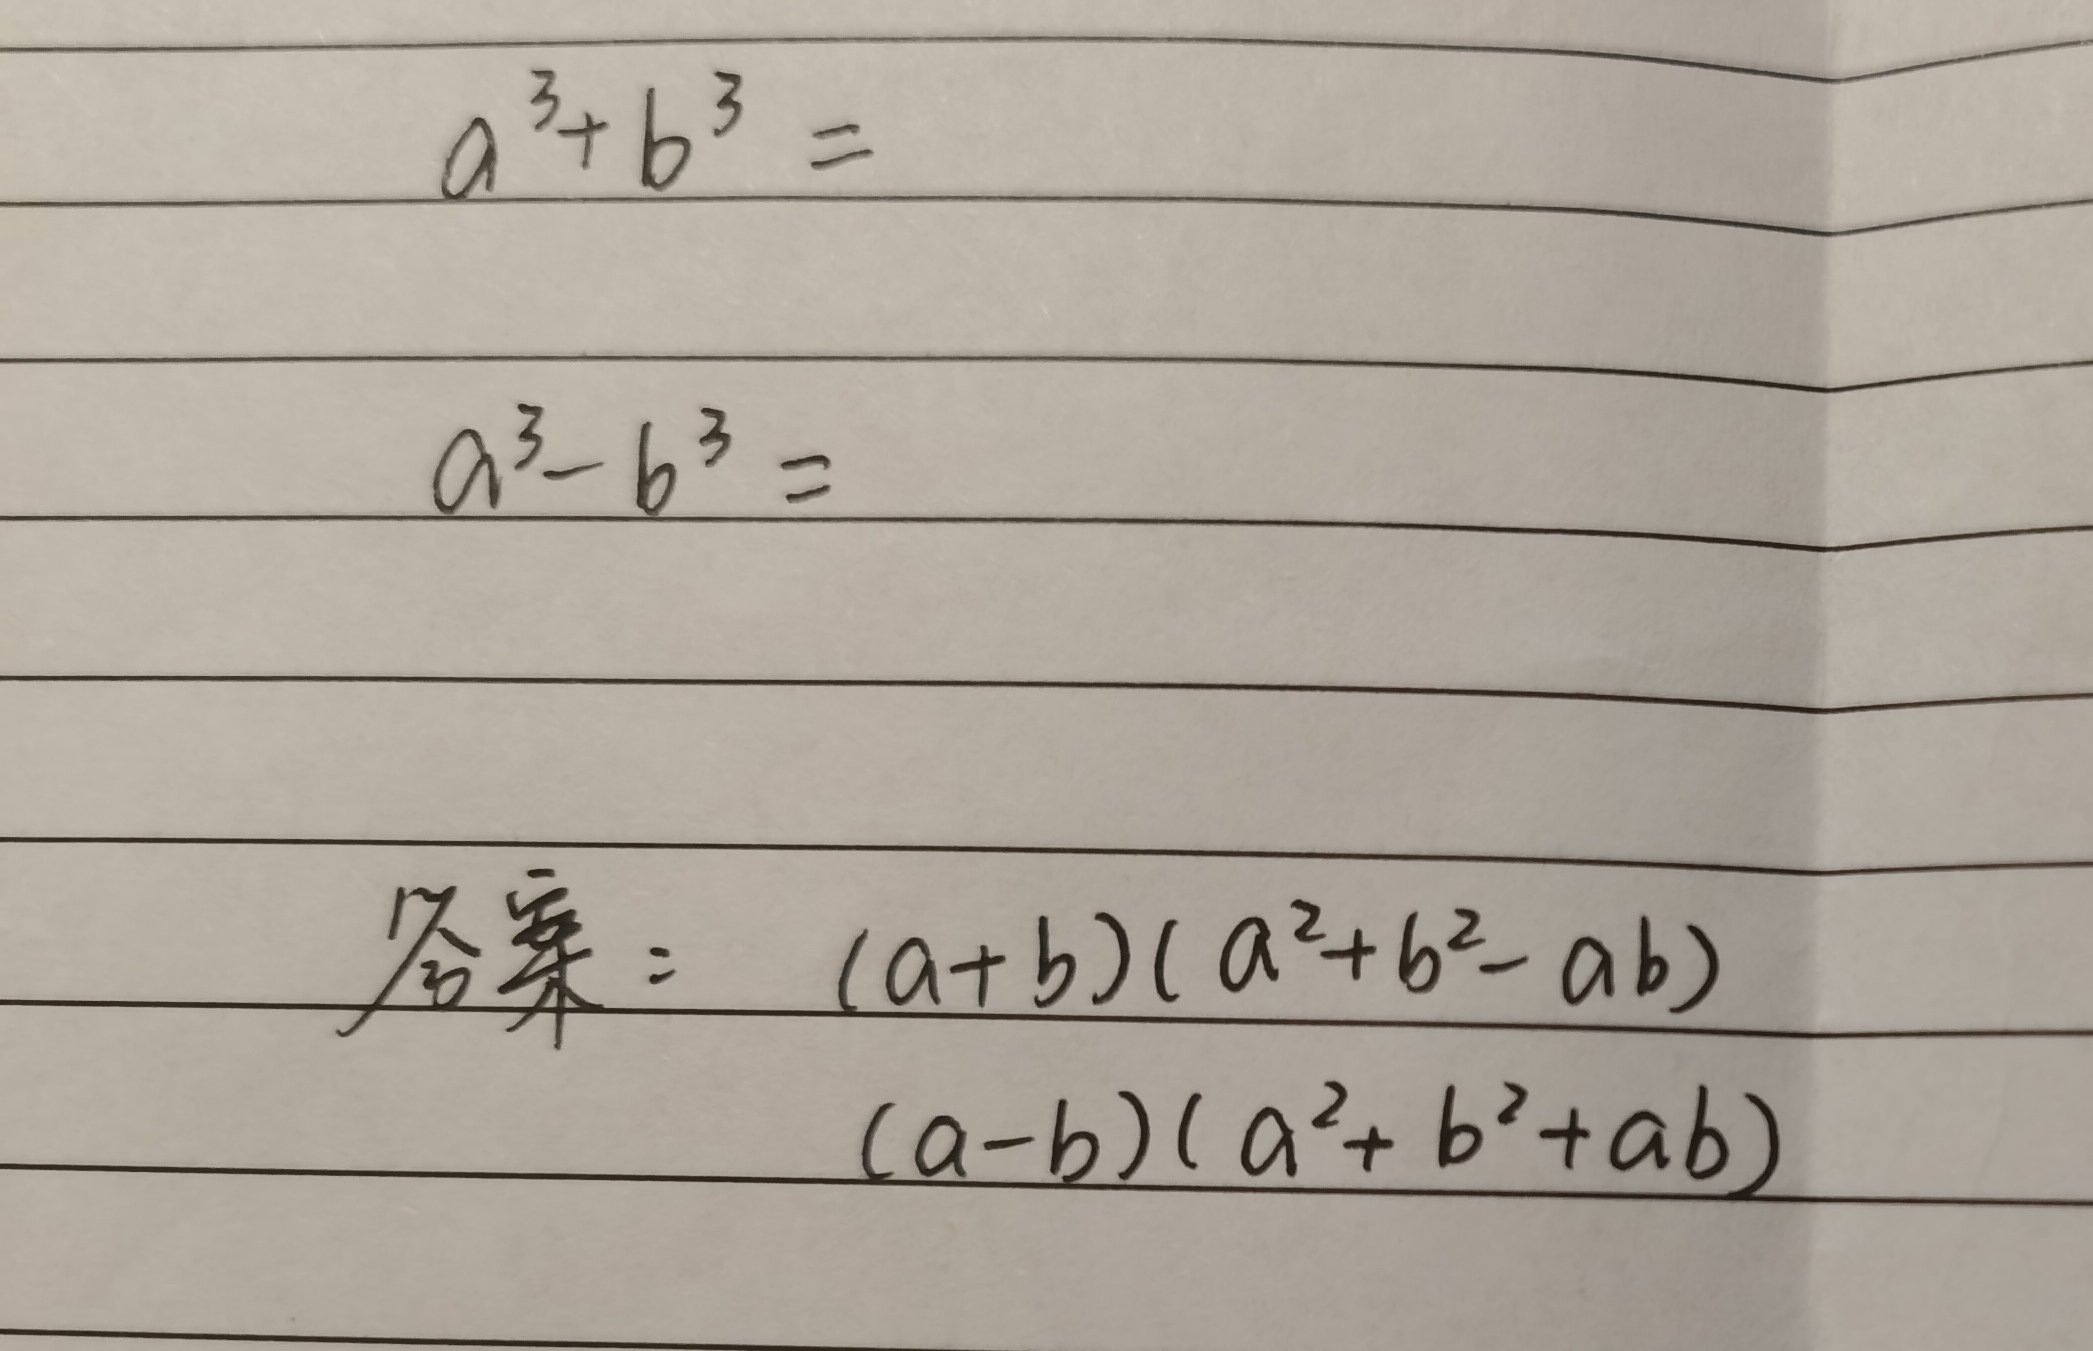 a³+b³=
a³-b³=
答案: (a+b)(a²+b²-ab)
(a-b)(a²+b²+ab)